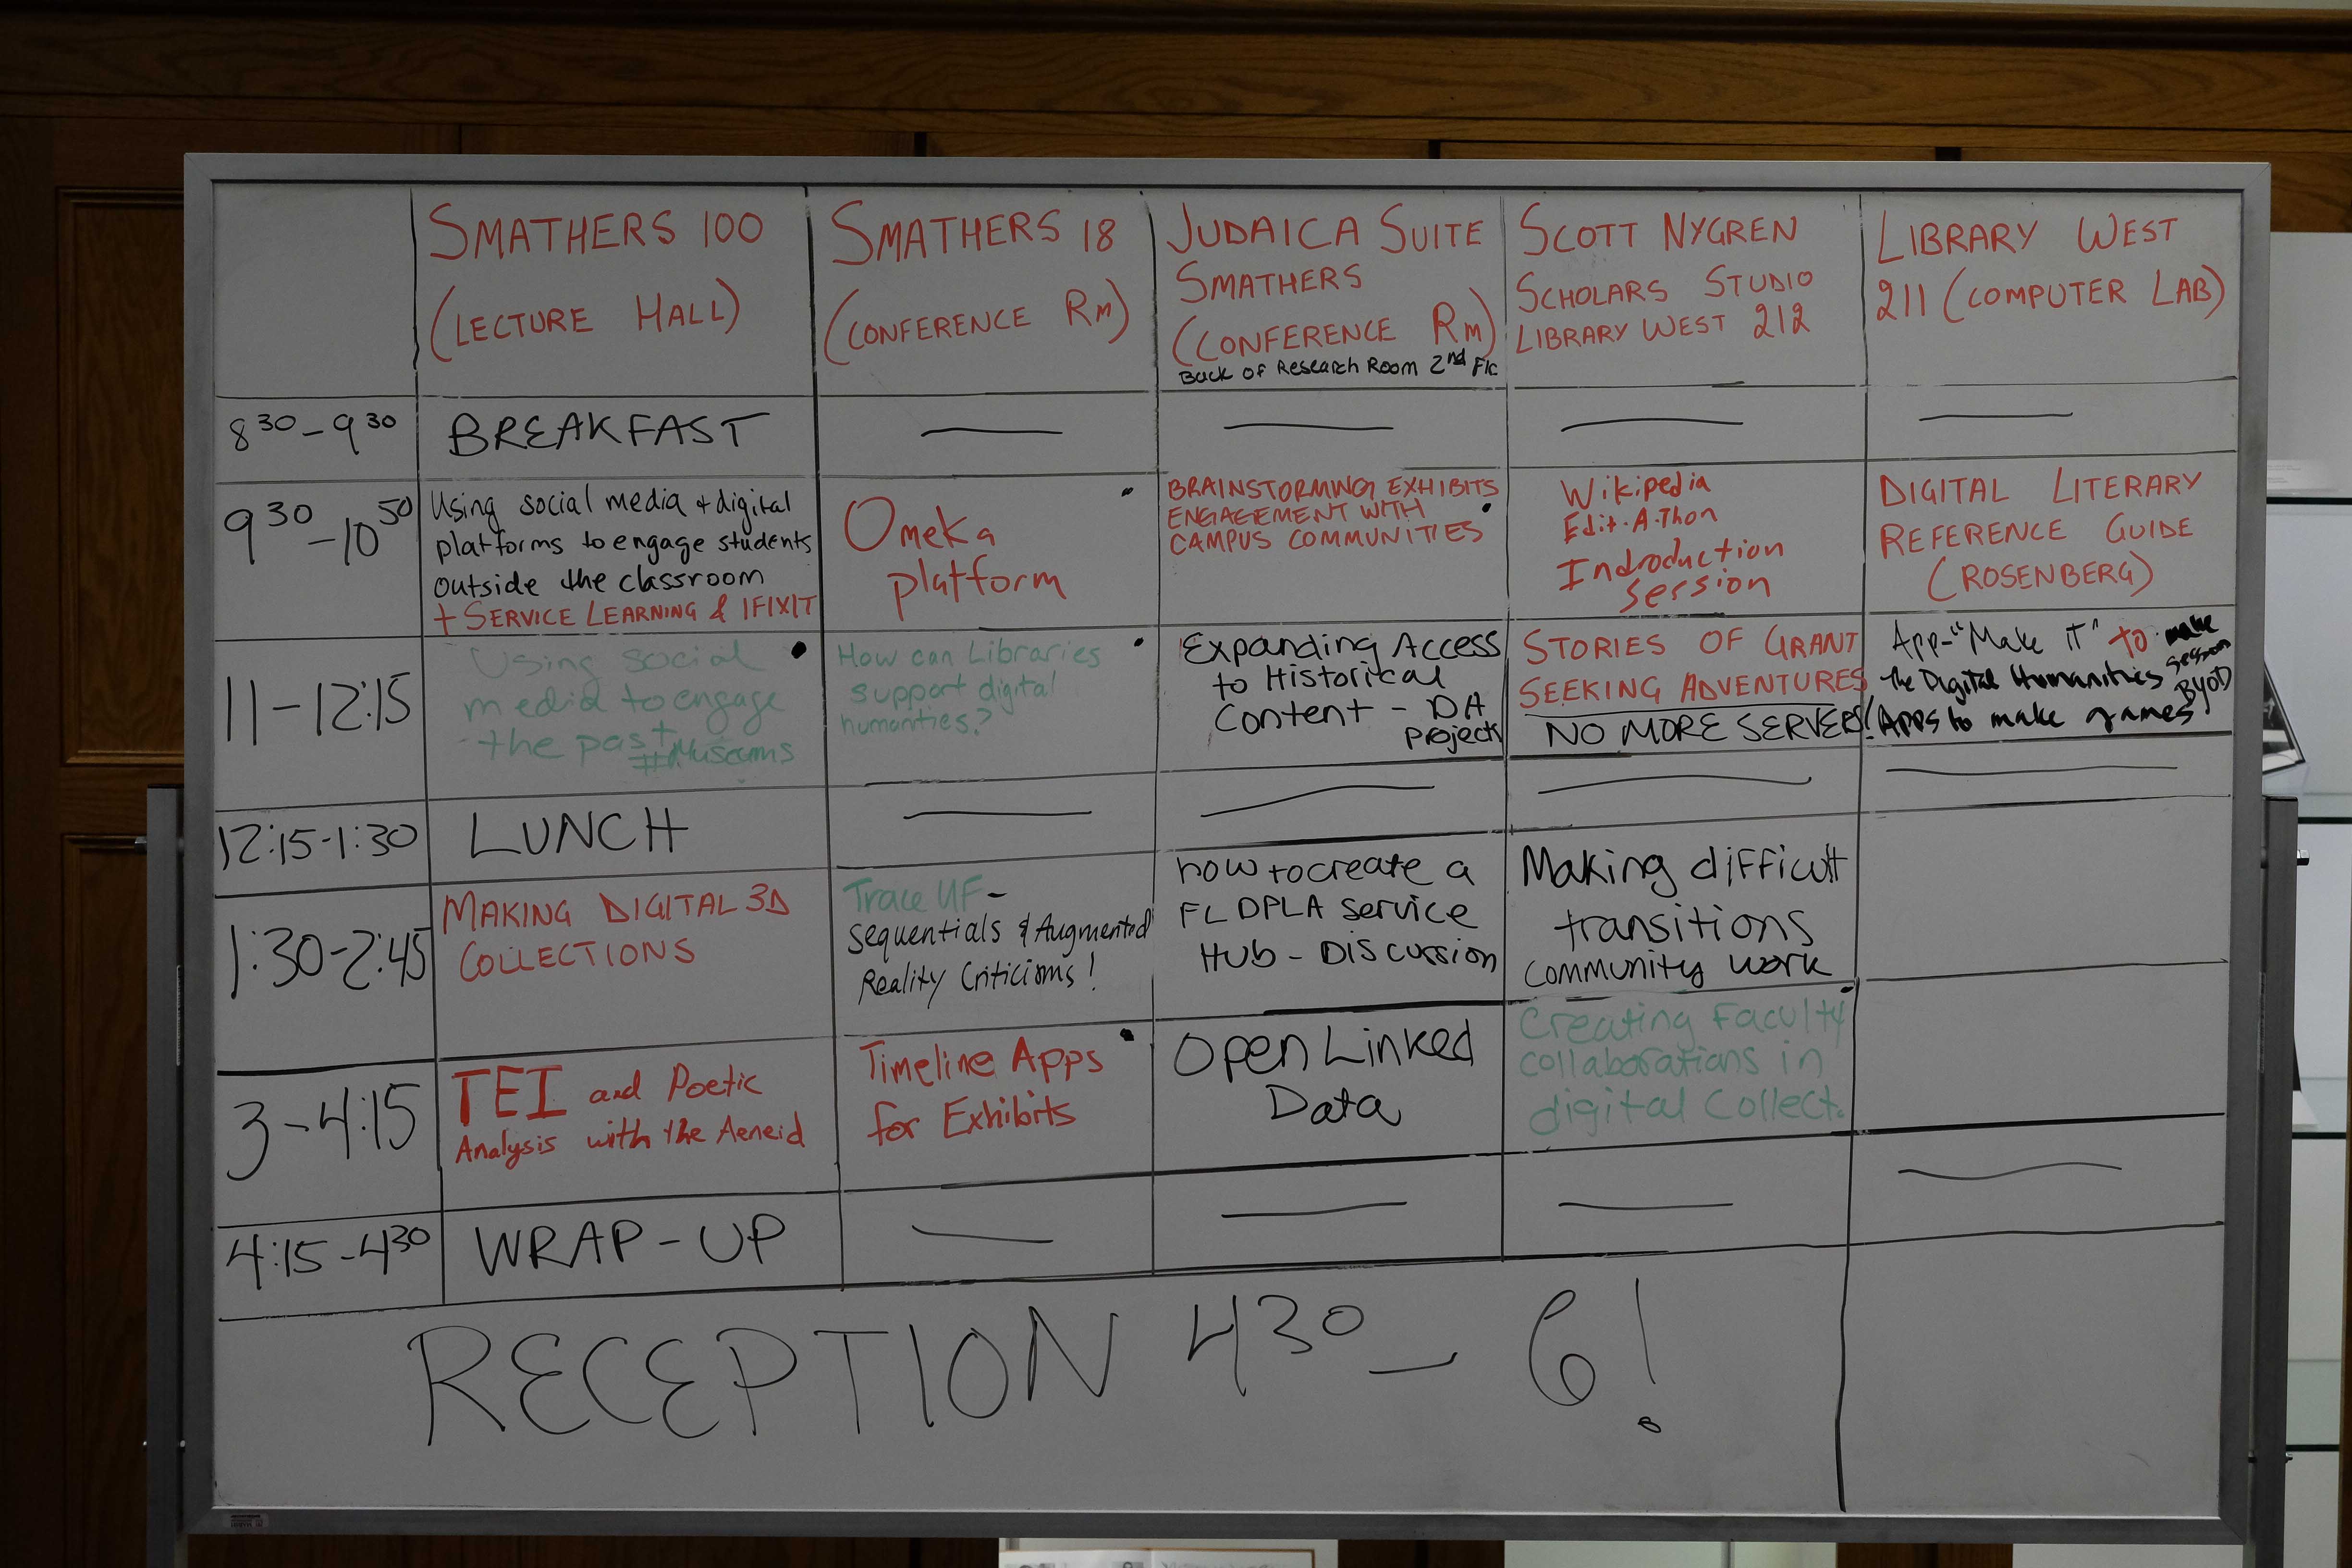 SMATHERS 100
(LECTURE HALL)
SMATHERS 18
(CONFERENCE RM)
JUDAICA SUITE
SMATHERS
(CONFERENCE RM)
Back of Research Room 2nd Flr
SCOTT NYGREN
SCHOLARS STUDIO
LIBRARY WEST 212
LIBRARY WEST
211 (COMPUTER LAB)
8 30 - 9 30
BREAKFAST
9 30 - 10 50
Using social media + digital
platforms to engage students
outside the classroom
+ SERVICE LEARNING & IFIXIT
Omeka
platform
BRAINSTORMING EXHIBITS
ENGAGEMENT WITH
CAMPUS COMMUNITIES
Wikipedia
Edit-A-Thon
Indroduction
Session
DIGITAL LITERARY
REFERENCE GUIDE
(ROSENBERG)
11 - 12:15
Using social
media to engage
the past
#Museums
How can Libraries
support digital
humanities?
Expanding Access
to Historical
Content - DH
Projects
STORIES OF GRANT
SEEKING ADVENTURES
NO MORE SERVERS!
App-"Make iT" to make
The Digital Humanities session
BYOD
Apps to make games
12:15-1:30
LUNCH
1:30-2:45
MAKING DIGITAL 3D
COLLECTIONS
Trace UF -
Sequentials & Augmented
Reality Criticisms!
How to create a
FL DPLA service
Hub - Discussion
Making difficult
transitions
community work
3 - 4:15
TEI and Poetic
Analysis with the Aeneid
Timeline Apps
for Exhibits
Open Linked
Data
Creating Faculty
collaborations in
digital Collect.
4:15 - 4 30
WRAP-UP
RECEPTION 4 30 - 6!